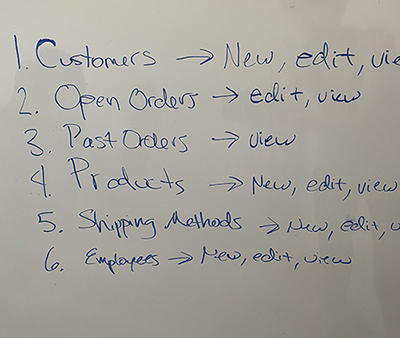 1. Customers → New, edit, vie
2. Open Orders → edit, view
3. Past Orders → view
4. Products → New, edit, view
5. Shipping Methods → New, edit, v
6. Employees → New, edit, view